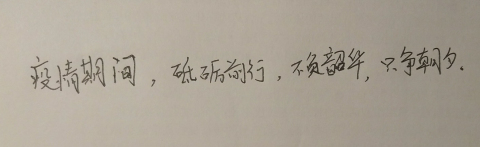 疫情期间，砥砺前行，不负韶华，只争朝夕.